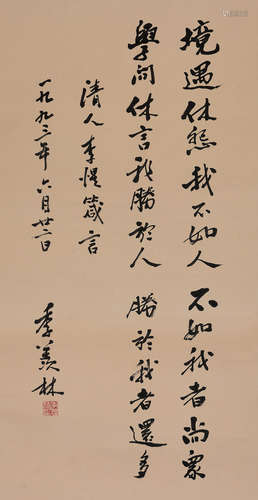 境遇休怨我不如人 不如我者尚眾
學問休言我勝於人 勝於我者還多
清人李惺箴言
一九九三年六月廿二日
季羨林